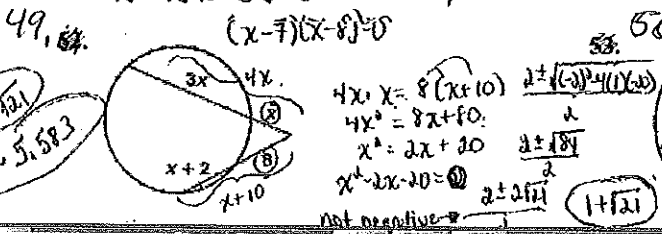 49.
(x-7)(x-8)=0
√21
5.583
3x
4x
x
8
x+2
x+10
4x·x = 8(x+10)
4x² = 8x+80
x² = 2x+20
x²-2x-20=0
not negative
2±√(-2)²-4(1)(-20)
2
2±√84
2
2±2√21
1+√21
53.